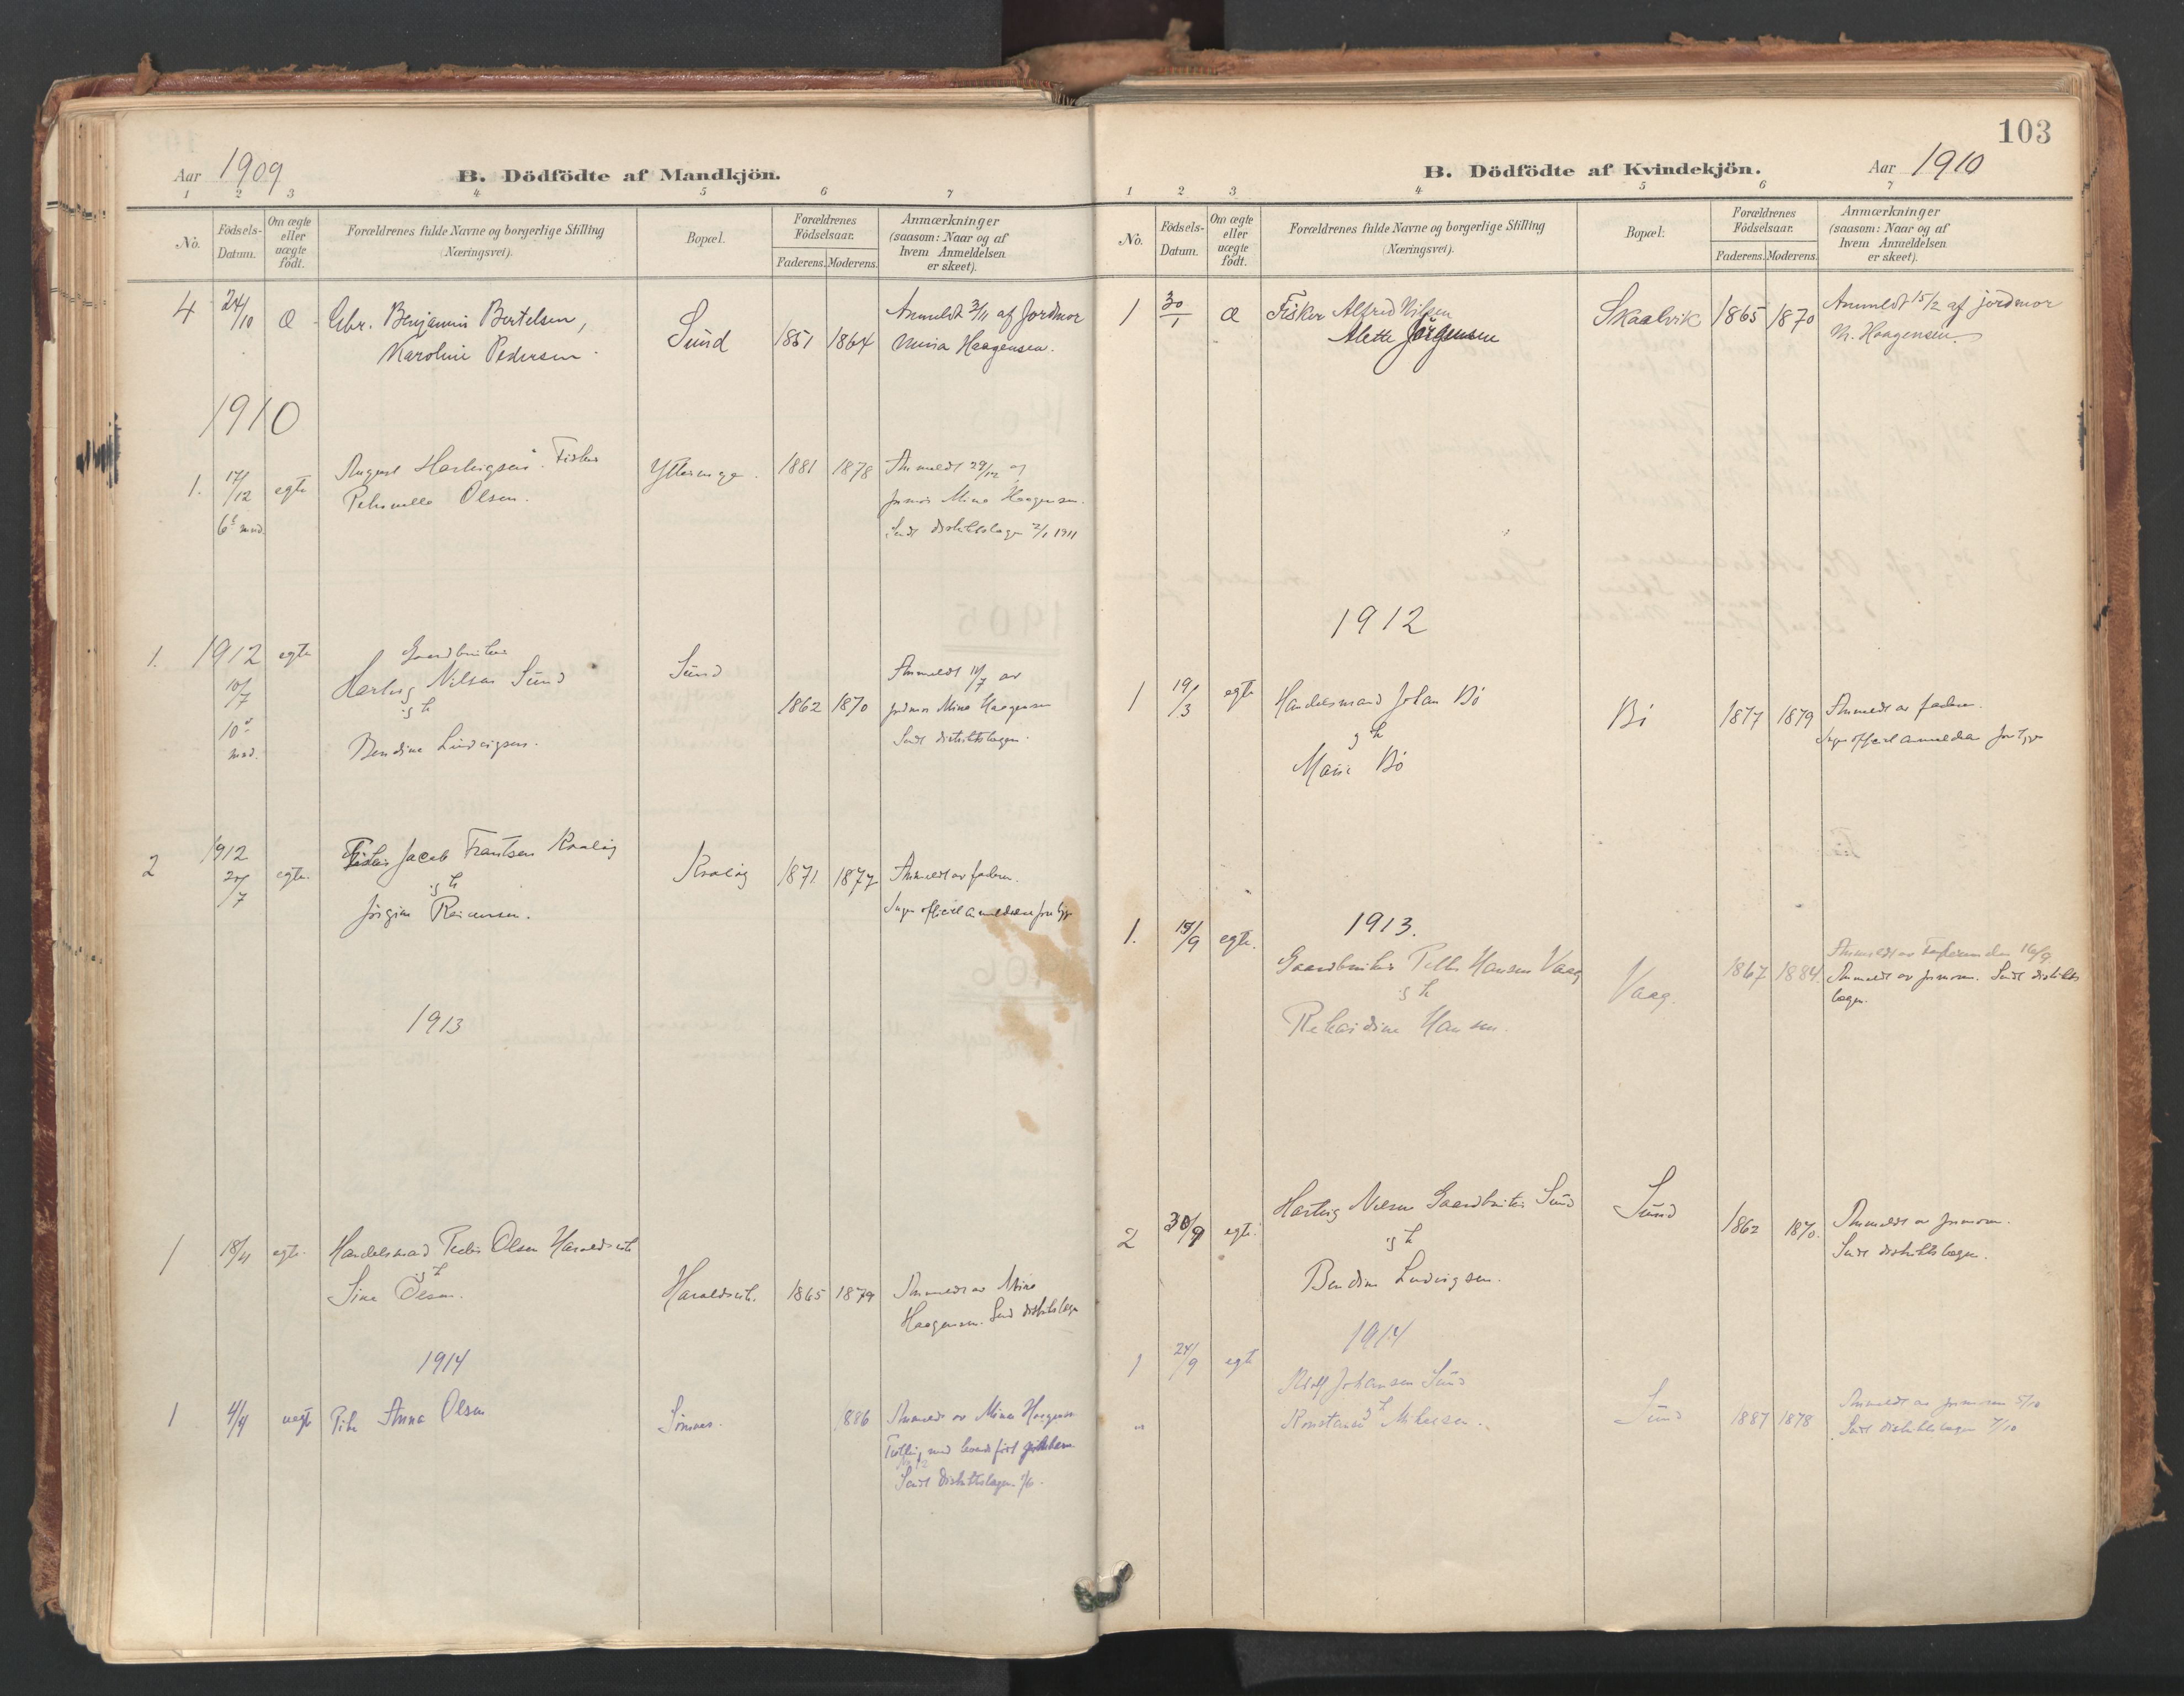 Aar 1909
B. Dödfödte af Mandkjön.
1 2 3 4 5 6 7
No.
Födsels-Datum.
Om ægte eller uægte födt.
Forældrenes fulde Navne og borgerlige Stilling (Næringsvei).
Bopæl.
Forældrenes Födselsaar.
Faderens. Moderens.
Anmærkninger (saasom: Naar og af hvem Anmeldelsen er skeet).
4 24/10 Æ Gbr. Benjamin Bertelsen, Sund 1851 1864 Anmeldt 3/11 af Jordmor
Karoline Pedersen. Mina Haagensen.
1910
1. 17/12 egte August Hartvigsen. Fisker 1881 1878 Anmeldt 29/12 af
6 mnd Petronelle Olsen. jormor Mina Haagensen.
Sendt distriktslægen 2/1 1911
1. 1912 egte Gaardbruker Sund
10/7 Hartvig Nilsen Sund 1862 1870 Anmeldt 11/7 av
10 mnd. og h jordmor Mina Haagensen
Bendine Ludvigsen. Sendt distriktslægen.
2 1912 egte Fisker Jacob Frantsen 1871 1877 Anmeldt av faderen.
/7 og h
Jörgine Reinersen. Ingen officiel anmeldelse foreligger
1913
1 18/11 egte. Handelsmand Peder Olsen
og h
Sina Olsen. 1865 1879 Anmeldt av Mina
Haagensen. Sendt distriktslægen
1914
1 4/4 uegte Pike Anna Olsen 1886 Anmeldt av Mina Haagensen
Tvilling med levende født
Sendt Distriktslægen.
103
B. Dödfödte af Kvindekjön.
Aar 1910
1 2 3 4 5 6 7
No.
Födsels-Datum.
Om ægte eller uægte födt.
Forældrenes fulde Navne og borgerlige Stilling (Næringsvei).
Bopæl.
Forældrenes Födselsaar.
Faderens. Moderens.
Anmærkninger (saasom: Naar og af hvem Anmeldelsen er skeet).
1 30/1 Æ Fisker Alfred Nilsen Skaalvik 1865 1870 Anmeldt 15/2 af jordmor
Alette Jörgensen M. Haagensen.
1912
1 19/3 egte Handelsmand Johan Bö Bö 1877 1879 Anmeldt av faderen.
og h Ingen officiel anmeldelse foreligger
Marie Bö
1913.
1. 15/9 egte. Gaardbruker Hansen Vaag Vaag. 1867 1884. Anmeldt av 16/9
og h Anmeldt av jormoren. Sendt distrikts
Hansen. lægen.
2 30/9 egte. Hartvig Nilsen Gaardbruker Sund Sund 1862 1870. Anmeldt av jormoren.
og h Sendt distriktslægen.
Bendine Ludvigsen.
1914
1 24/9 egte Johansen Sund Sund 1887 1878 Anmeldt av jormoren 5/10
og h Sendt distriktslægen 7/10
Mikelsen.